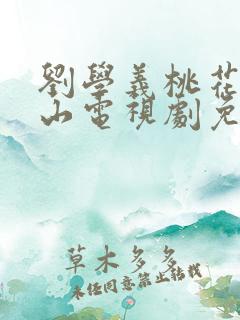 劉學義桃花
山電視劇免
草木多多
未經同意禁止轉載